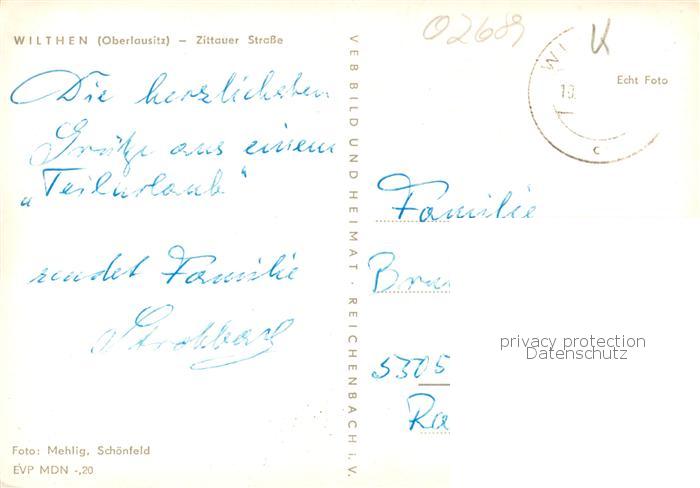 WILTHEN (Oberlausitz) — Zittauer Straße
Die herzlichsten
Grüße aus einem
„Teilurlaub"
sendet Familie
Foto: Mehlig, Schönfeld
EVP MDN -,20
VEB BILD UND HEIMAT · REICHENBACH i. V.
02689
K
WI
10.
c
Echt Foto
Familie
Bra
5305
Ra
privacy protection
Datenschutz